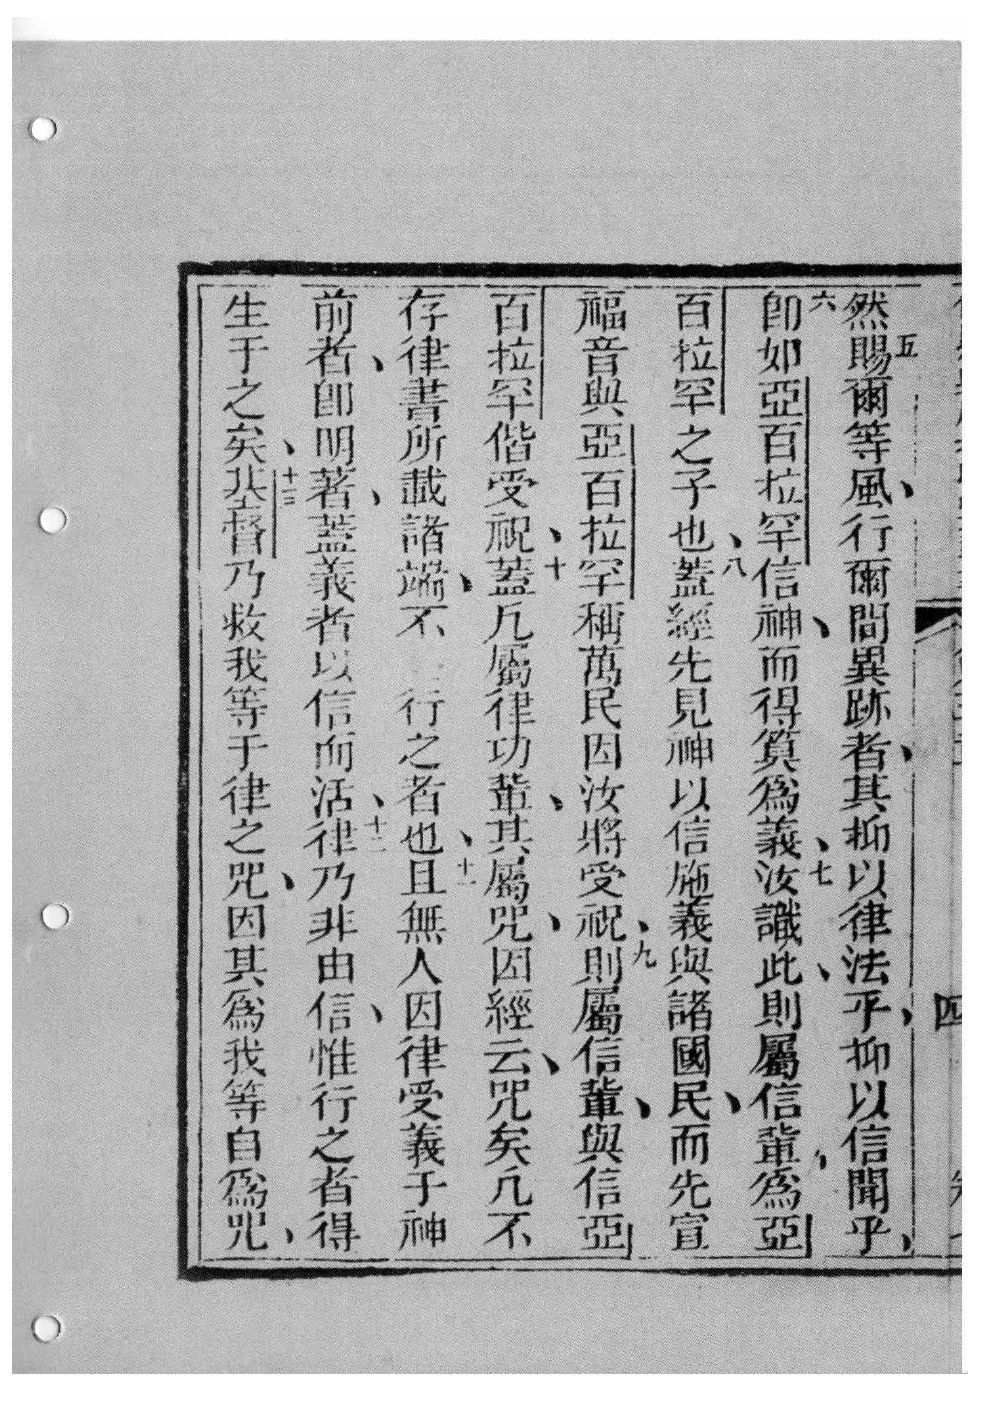 然五賜爾等風、行爾間異跡者、其抑以律法乎、抑以信聞乎、
六卽如亞百拉罕信神、而得筭為義、七汝識此、則屬信軰、為亞
百拉罕之子也、八蓋經先見神以信施義與諸國民、而先宣
福音與亞百拉罕稱萬民因汝將受祝、九則屬信軰、與信亞
百拉罕偕受祝、十蓋凡屬律功軰、其屬咒、因經云、咒矣凡不
存律書所載諸端、不行之者也、十一且無人因律受義于神
前者、卽明著、蓋義者以信而活、十二律乃非由信、惟行之者得
生于之矣、十三基督乃救我等于律之咒、因其為我等自為咒、
四